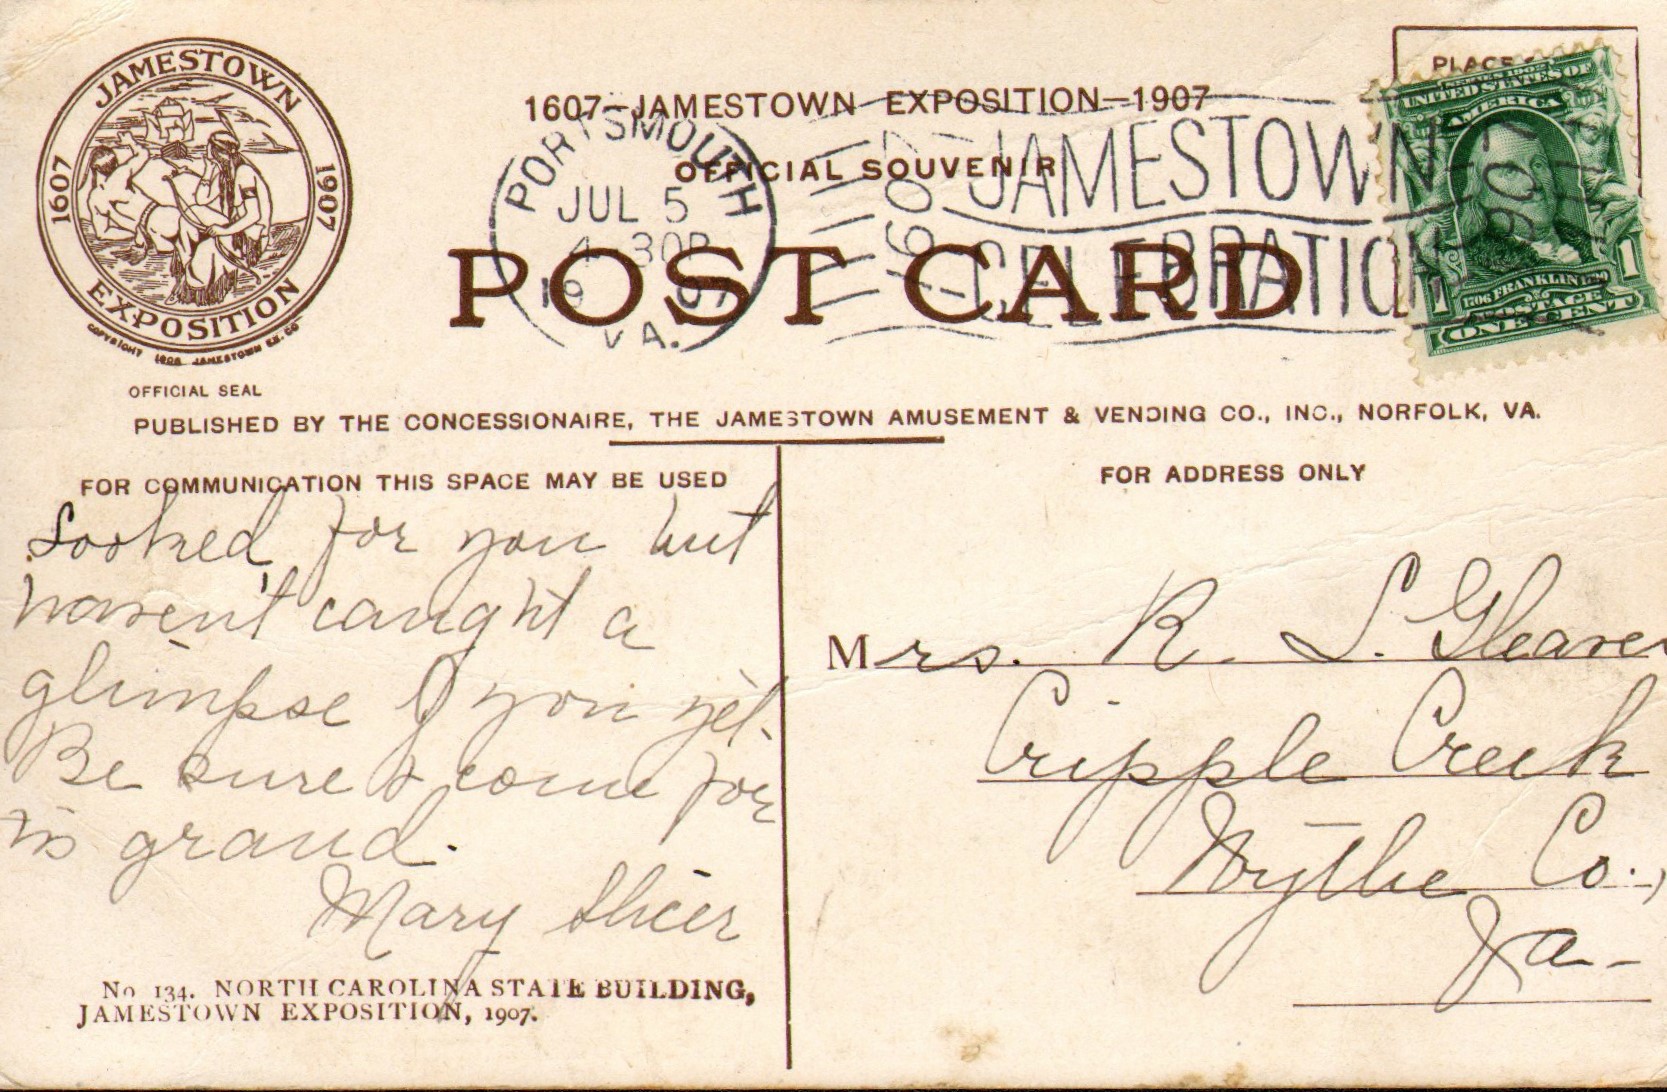 JAMESTOWN
1607
1907
EXPOSITION
COPYRIGHT 1906 JAMESTOWN EX. CO
OFFICIAL SEAL
1607—JAMESTOWN EXPOSITION—1907
OFFICIAL SOUVENIR
POST CARD
PORTSMOUTH
JUL 5
4 30P
19 07
VA.
1607
JAMESTOWN
CELEBRATION
1907
PLACE
SERIES 1902
UNITED STATES OF
AMERICA
1706 FRANKLIN 1790
POSTAGE
1 1
ONE CENT
PUBLISHED BY THE CONCESSIONAIRE, THE JAMESTOWN AMUSEMENT & VENDING CO., INC., NORFOLK, VA.
FOR COMMUNICATION THIS SPACE MAY BE USED
Looked for you but
haven't caught a
glimpse of you yet.
Be sure & come for
tis grand.
Mary Slicer
No 134. NORTH CAROLINA STATE BUILDING,
JAMESTOWN EXPOSITION, 1907.
FOR ADDRESS ONLY
Mrs. R. S. Gleaves
Cripple Creek
Wythe Co.,
Va-